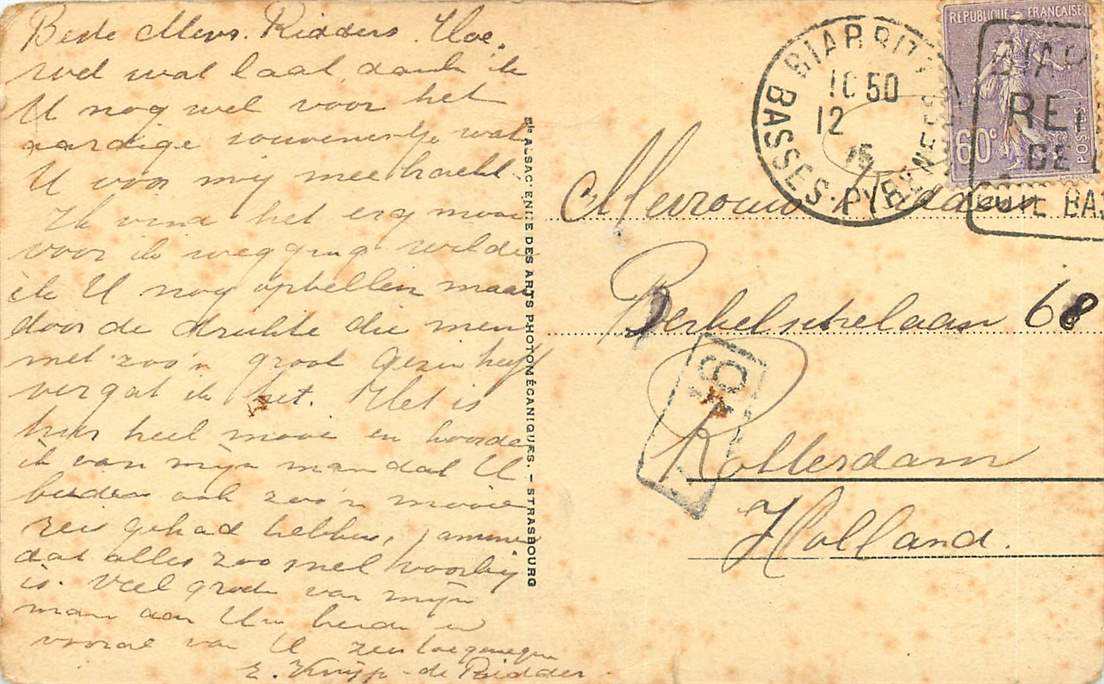 Beste Mevr. Ridders. Hoe-
wel wat laat, dank ik
U nog wel voor het
aardige souveneertje wat
U voor mij meebracht.
Ik vind het erg mooi
voor de wegging wilde
ik U nog opbellen maar
door de drukte die men
met zoo'n groot gezin heeft
vergat ik het. Het is
hier heel mooi en hoorde
ik van mijn man dat U
beiden ook zoo'n mooie
reis gehad hebben, jammer
dat alles zoo snel voorbij
is. Veel groeten van mijn
man aan Uw beide en
vooral van U zeer toegenegen
de Ridder
Sté ALSACIENNE DES ARTS PHOTOMÉCANIQUES. - STRASBOURG
BIARRITZ
10 50
12
BASSES-PYRENEES
REPUBLIQUE FRANÇAISE
60c
POSTES
BIAR
RE
DE
COTE BAS
Mevrouw Ridders
Berkelschelaan 68
19
Rotterdam
Holland.